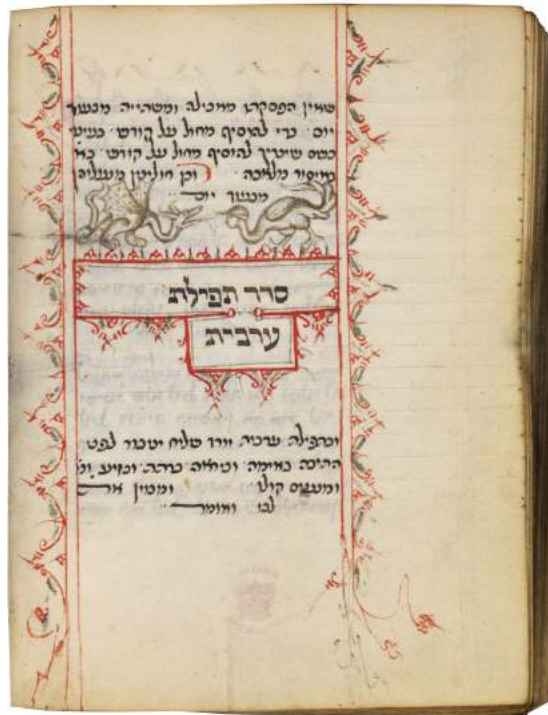 שאין הפסקתן מאכילה ומשתייה מבעוד
יום כדי להוסיף מחול על קודש
כשם שצריך להוסיף מחול על קודש כא
באיסור מלאכה וכן חולצין מנעליהן
מבעוד יום
סדר תפילת
ערבית
ובתפילה ערבית יורד שליח ציבור לפני
התיבה באימה וביראה ברתת ובזיע
ומנעים קולו ומכוין את
לבו ואומר